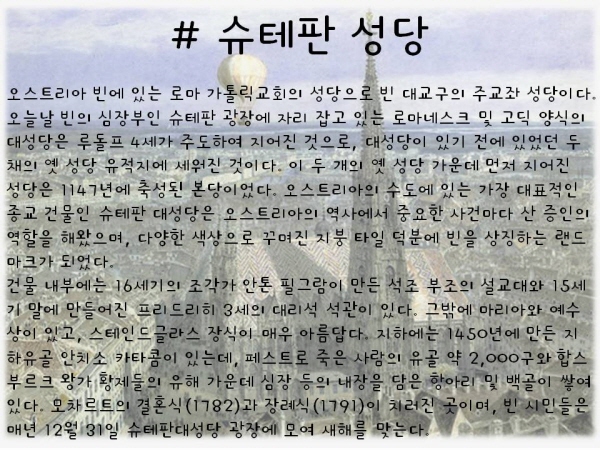 # 슈테판 성당
오스트리아 빈에 있는 로마 가톨릭교회의 성당으로 빈 대교구의 주교좌 성당이다.
오늘날 빈의 심장부인 슈테판 광장에 자리 잡고 있는 로마네스크 및 고딕 양식의
대성당은 루돌프 4세가 주도하여 지어진 것으로, 대성당이 있기 전에 있었던 두
채의 옛 성당 유적지에 세워진 것이다. 이 두 개의 옛 성당 가운데 먼저 지어진
성당은 1147년에 축성된 본당이었다. 오스트리아의 수도에 있는 가장 대표적인
종교 건물인 슈테판 대성당은 오스트리아의 역사에서 중요한 사건마다 산 증인의
역할을 해왔으며, 다양한 색상으로 꾸며진 지붕 타일 덕분에 빈을 상징하는 랜드
마크가 되었다.
건물 내부에는 16세기의 조각가 안톤 필그람이 만든 석조 부조의 설교대와 15세
기 말에 만들어진 프리드리히 3세의 대리석 석관이 있다. 그밖에 마리아와 예수
상이 있고, 스테인드글라스 장식이 매우 아름답다. 지하에는 1450년에 만든 지
하유골 안치소 카타콤이 있는데, 페스트로 죽은 사람의 유골 약 2,000구와 합스
부르크 왕가 황제들의 유해 가운데 심장 등의 내장을 담은 항아리 및 백골이 쌓여
있다. 모차르트의 결혼식(1782)과 장례식(1791)이 치러진 곳이며, 빈 시민들은
매년 12월 31일 슈테판대성당 광장에 모여 새해를 맞는다.